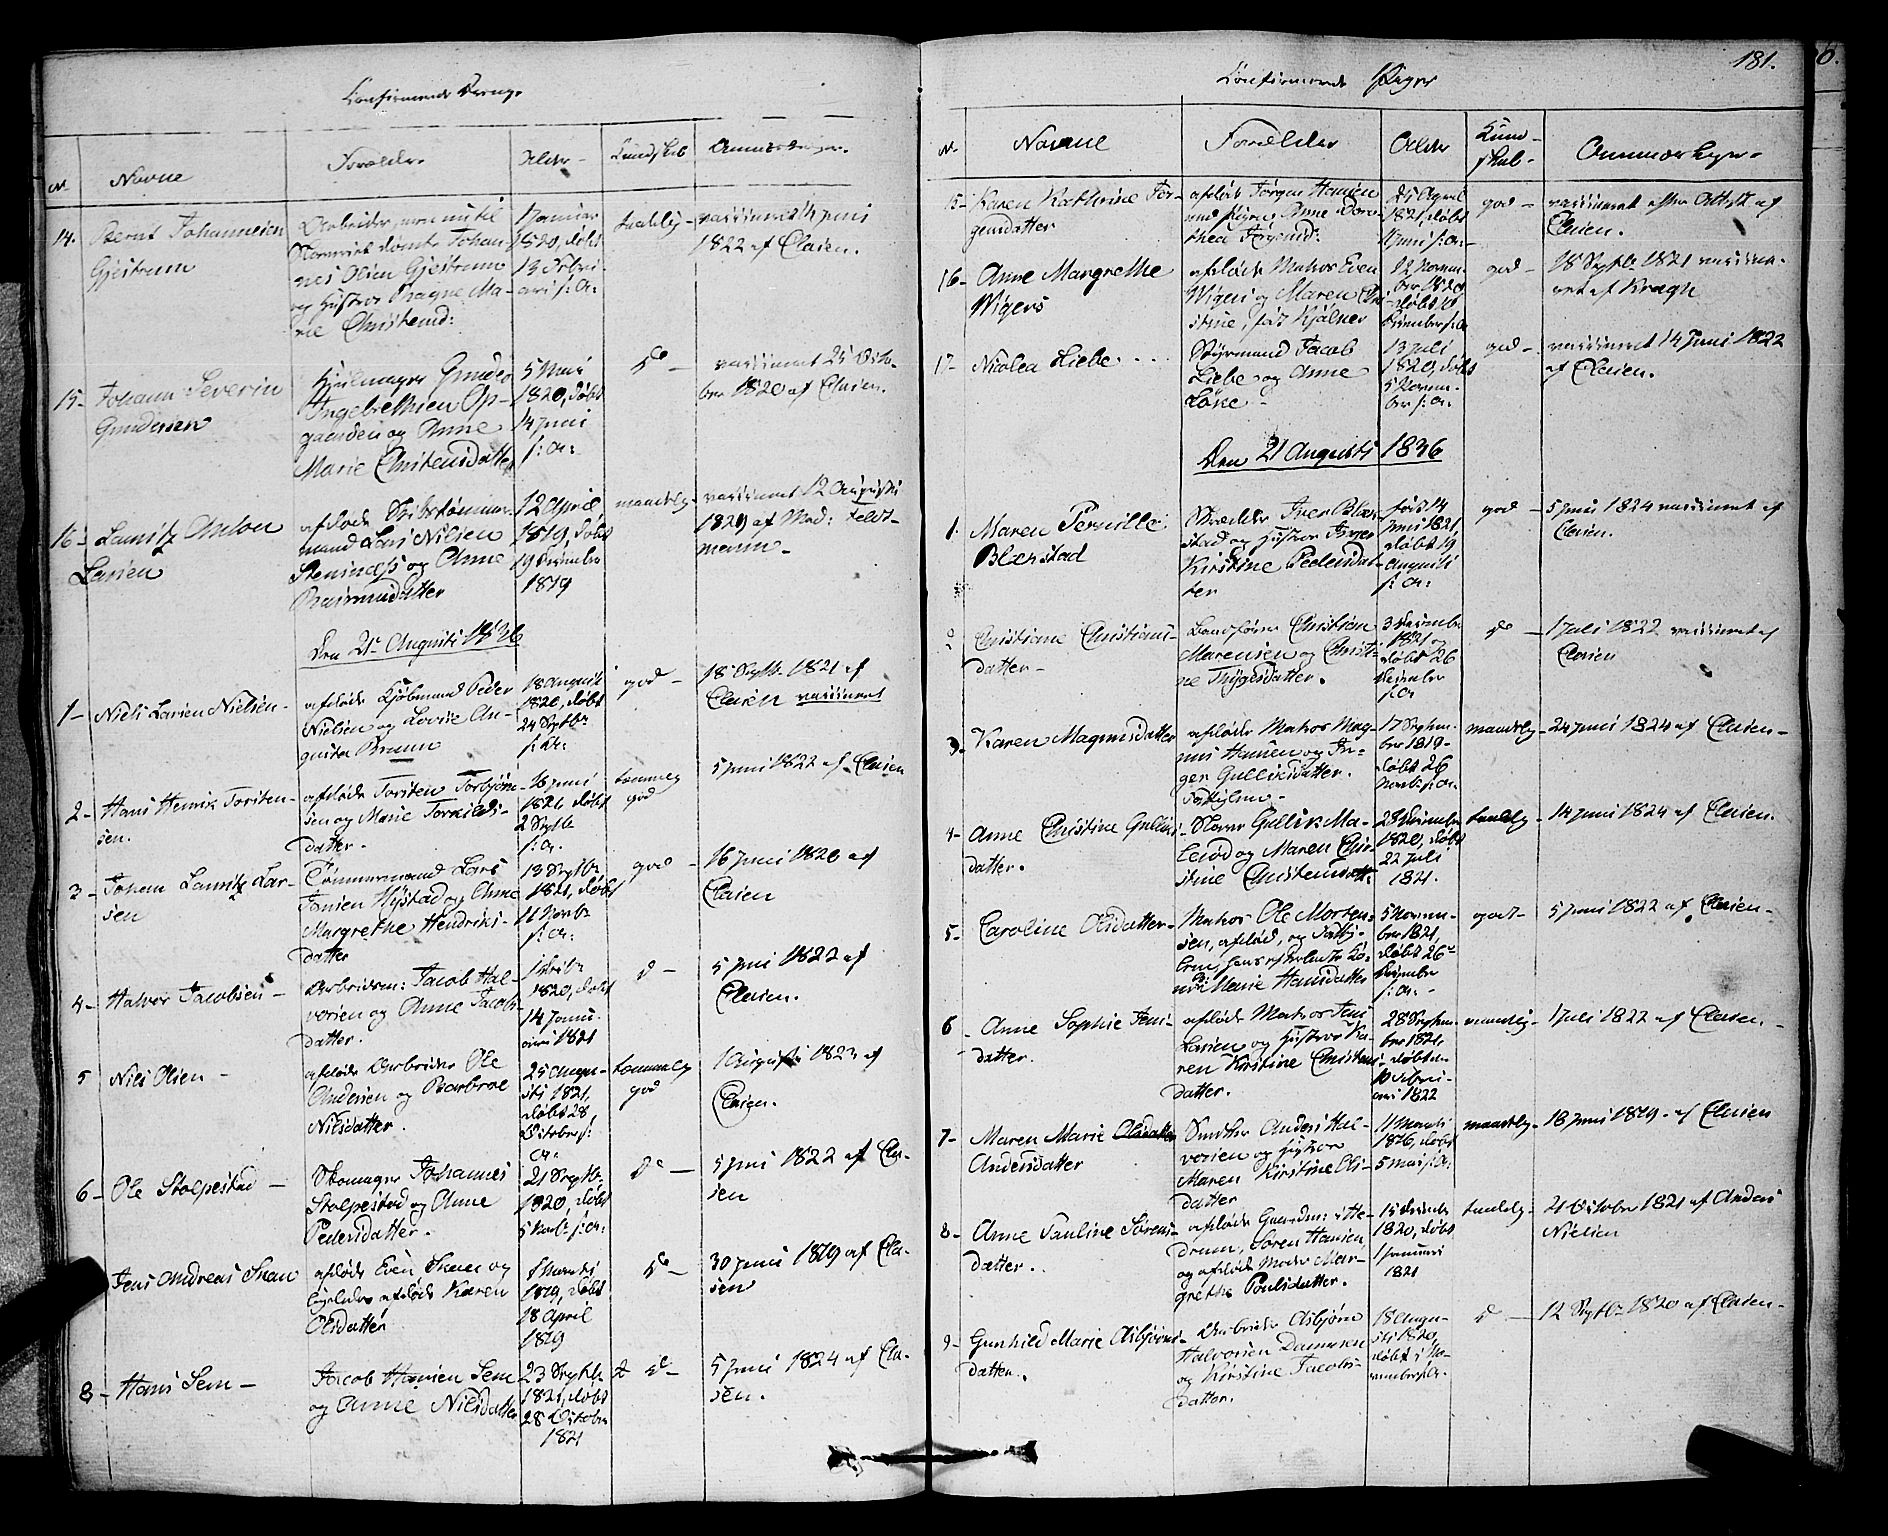 Confirmerede Drenge
Nr.
Navne
Forældre
Alder
Kundskab
Anmærkninger
14.
Bernt Johannesen
Gjestrum
Johan-
nes Olsen Gjestrum
og Hustroe Ragne Ma-
rie Christensd:
1 Januar
1820, døbt
13 Febru-
ari s: A:
taalelig
vaccineret 14 Juni
1822 af Clasen.
15-
Johann Severin
Gundersen
Hjulmager Gunder
Ingebrethsen Op-
gaarden og Anne
Marie Christensdatter
5 Mai
1820, døbt
14 Juni
s: A:
do
vaccineret 25 Octo-
ber 1820 af Clasen.
16-
Lauritz Anton
Larsen
afdøde Skibstømmer-
mand Lars Nilsen
Steninass og Anne
Rasmusdatter
12 April
1819, døbt
19 December
1819
maadelig
vaccineret 12 Augusti
1829 af Mad: Feldt-
mann
Den 21 Augusti 1836
1-
Niels Larsen Nielsen
afdøde Kjøbmand Peder
Nielsen og Lovise Au-
gusta Bruun
18 August
1820, døbt
24 Septbr
s: A:
god
18 Septb. 1821 af
Clasen vaccineret
2-
Hans Henrik Torsten-
sen.
afdøde Torsten Torbjørn-
sen og Marie Torkilds-
datter.
16 Juni
1821, døbt
2 Septb
s: A:
temmelig
god
5 Juni 1822 af Clasen
3-
Johan Lauritz Lar-
sen
Tømmermand Lars
Jansen Hystad og Anne
Margrethe Hendriks-
datter
13 Septbr
1821, døbt
11 Novb
s: A:
god
16 Juni 1820 af
Clasen
4-
Halvor Jacobsen
Arbeidsm: Jacob Hal-
vorsen og Anne Jacobs-
datter.
1820, døbt
14 Janu-
ari 1821
do
5 Juni 1822 af
Clasen.
5
Nils Olsen
afdøde Arbeider Ole
Andersen og Barbroe
Nilsdatter.
25 Augu-
sti 1821,
døbt 28
October s:
A:
temmelig
god
1 Augusti 1823 af
Clasen.
6-
Ole Stolpestad
Skomager Johannes
Stolpestad og Anne
Pedersdatter.
21 Septb.
1820, døbt
5 Novb. s: A:
do
5 Juni 1822 af Cla-
sen
Jens Andreas Skau
afdøde Even Skau og
ligeledes afdøde Karen
Olsdatter
1 Marti
1819, døbt
18 April
1819
do
30 Juni 1819 af Cla-
sen
8-
Hans Sem
Jacob Hansen Sem
og Anne Nilsdatter
23 Septb.
1821, døbt
28 October
1821
do
5 Juni 1824 af Cla-
sen.
181.
Confirmerede Piger
Nr.
Navne
Forældre
Alder
Kund-
skab-
Anmærkgn.
15-
Karen Kathrine Jør-
gensdatter
afdøde Jørgen Hansen
og Anne Doro-
thea Jørgensd:
25 April
1821, døbt
11 Juni s: A:
god
vaccineret efter Attest af
Clasen.
16-
Anne Margrethe
Wigers
afdøde Matros Even
Wigers og Maren Chri-
stine, fød Kjølner
12 Novem-
ber 1820
døbt 10
December s: A:
god
18 Septb. 1821 vaccine-
ret af Kragh
17-
Nicolea Liebe
Styrmand Jacob
Liebe og Anne
Løke
13 Juli
1820, døbt
5 Novem-
ber s: A:
god
vaccineret 14 Juni 1822
af Clasen.
Den 21 Augusti 1836
1.
Maren Pernille
Blærstad
Skrædder Iver Blær-
stad og Hustroe Inger
Kirstine Pedersdat-
ter
født 14
Juni 1821,
døbt 19
Augusti
s: A:
god
5 Juni 1824 vaccineret af
Clasen.
2
Christiane Christians-
datter
Christian
Marensen og Christi-
ne Thygesdatter.
3 December
1821 og
døbt 26
December
s: A:
do
1 Juli 1822 vaccineret af
Clasen
3-
Karen Magnusdatter
afdøde Matros Mag-
nus Hansen og In-
ger Gulliksdatter.
17 Septem-
ber 1819
døbt 26
Novb. s: A:
maadelig
24 Juni 1824 af Clasen
4-
Anne Christine Gulliks-
datter.
Gullik Ma-
lerød og Maren Chri-
stine Christensdatt:
28 December
1820, døbt
22 Juli
1821.
taalelig
14 Juni 1824 af Clasen.
5-
Caroline Olsdatter
Matros Ole Morten-
sen, afdød, og
Marie Hansdatter
5 Novem-
ber 1821,
døbt 26
December
s: A:
god
5 Juni 1822 af Clasen
6
Anne Sophie Jens-
datter.
afdøde Matros Jens
Larsen og Hustroe Ka-
ren Kirstine Christens-
datter.
28 Septem-
ber 1821,
døbt
10 Febru-
ari 1822
maadelig
1 Juli 1822 af Clasen.
7-
Maren Marie Olsdatter
Andersdatter
Anders Hal-
vorsen og Hustroe
Maren Kirstine Ols-
datter
11 Marti
1816, døbt
5 Mai s: A:
maadelig
18 Juni 1819 af Clasen
8-
Anne Pauline Sørens-
datter.
afdøde Gaardm: i He-
drum, Søren Hansen
og afdøde Moder Mar-
grethe Poulsdatter.
15 December
1820, døbt
1 Januari
1821
taalelig
21 October 1821 af Anders
Nielsen
9-
Gunhild Marie Asbjørns-
datter.
Arbeider Asbjørn
Halvorsen Dammen
og Kirstine Jacobs-
datter.
18 Augu-
sti 1820,
døbt i No-
vember s: A:
do
12 Septbr 1820 af Clasen